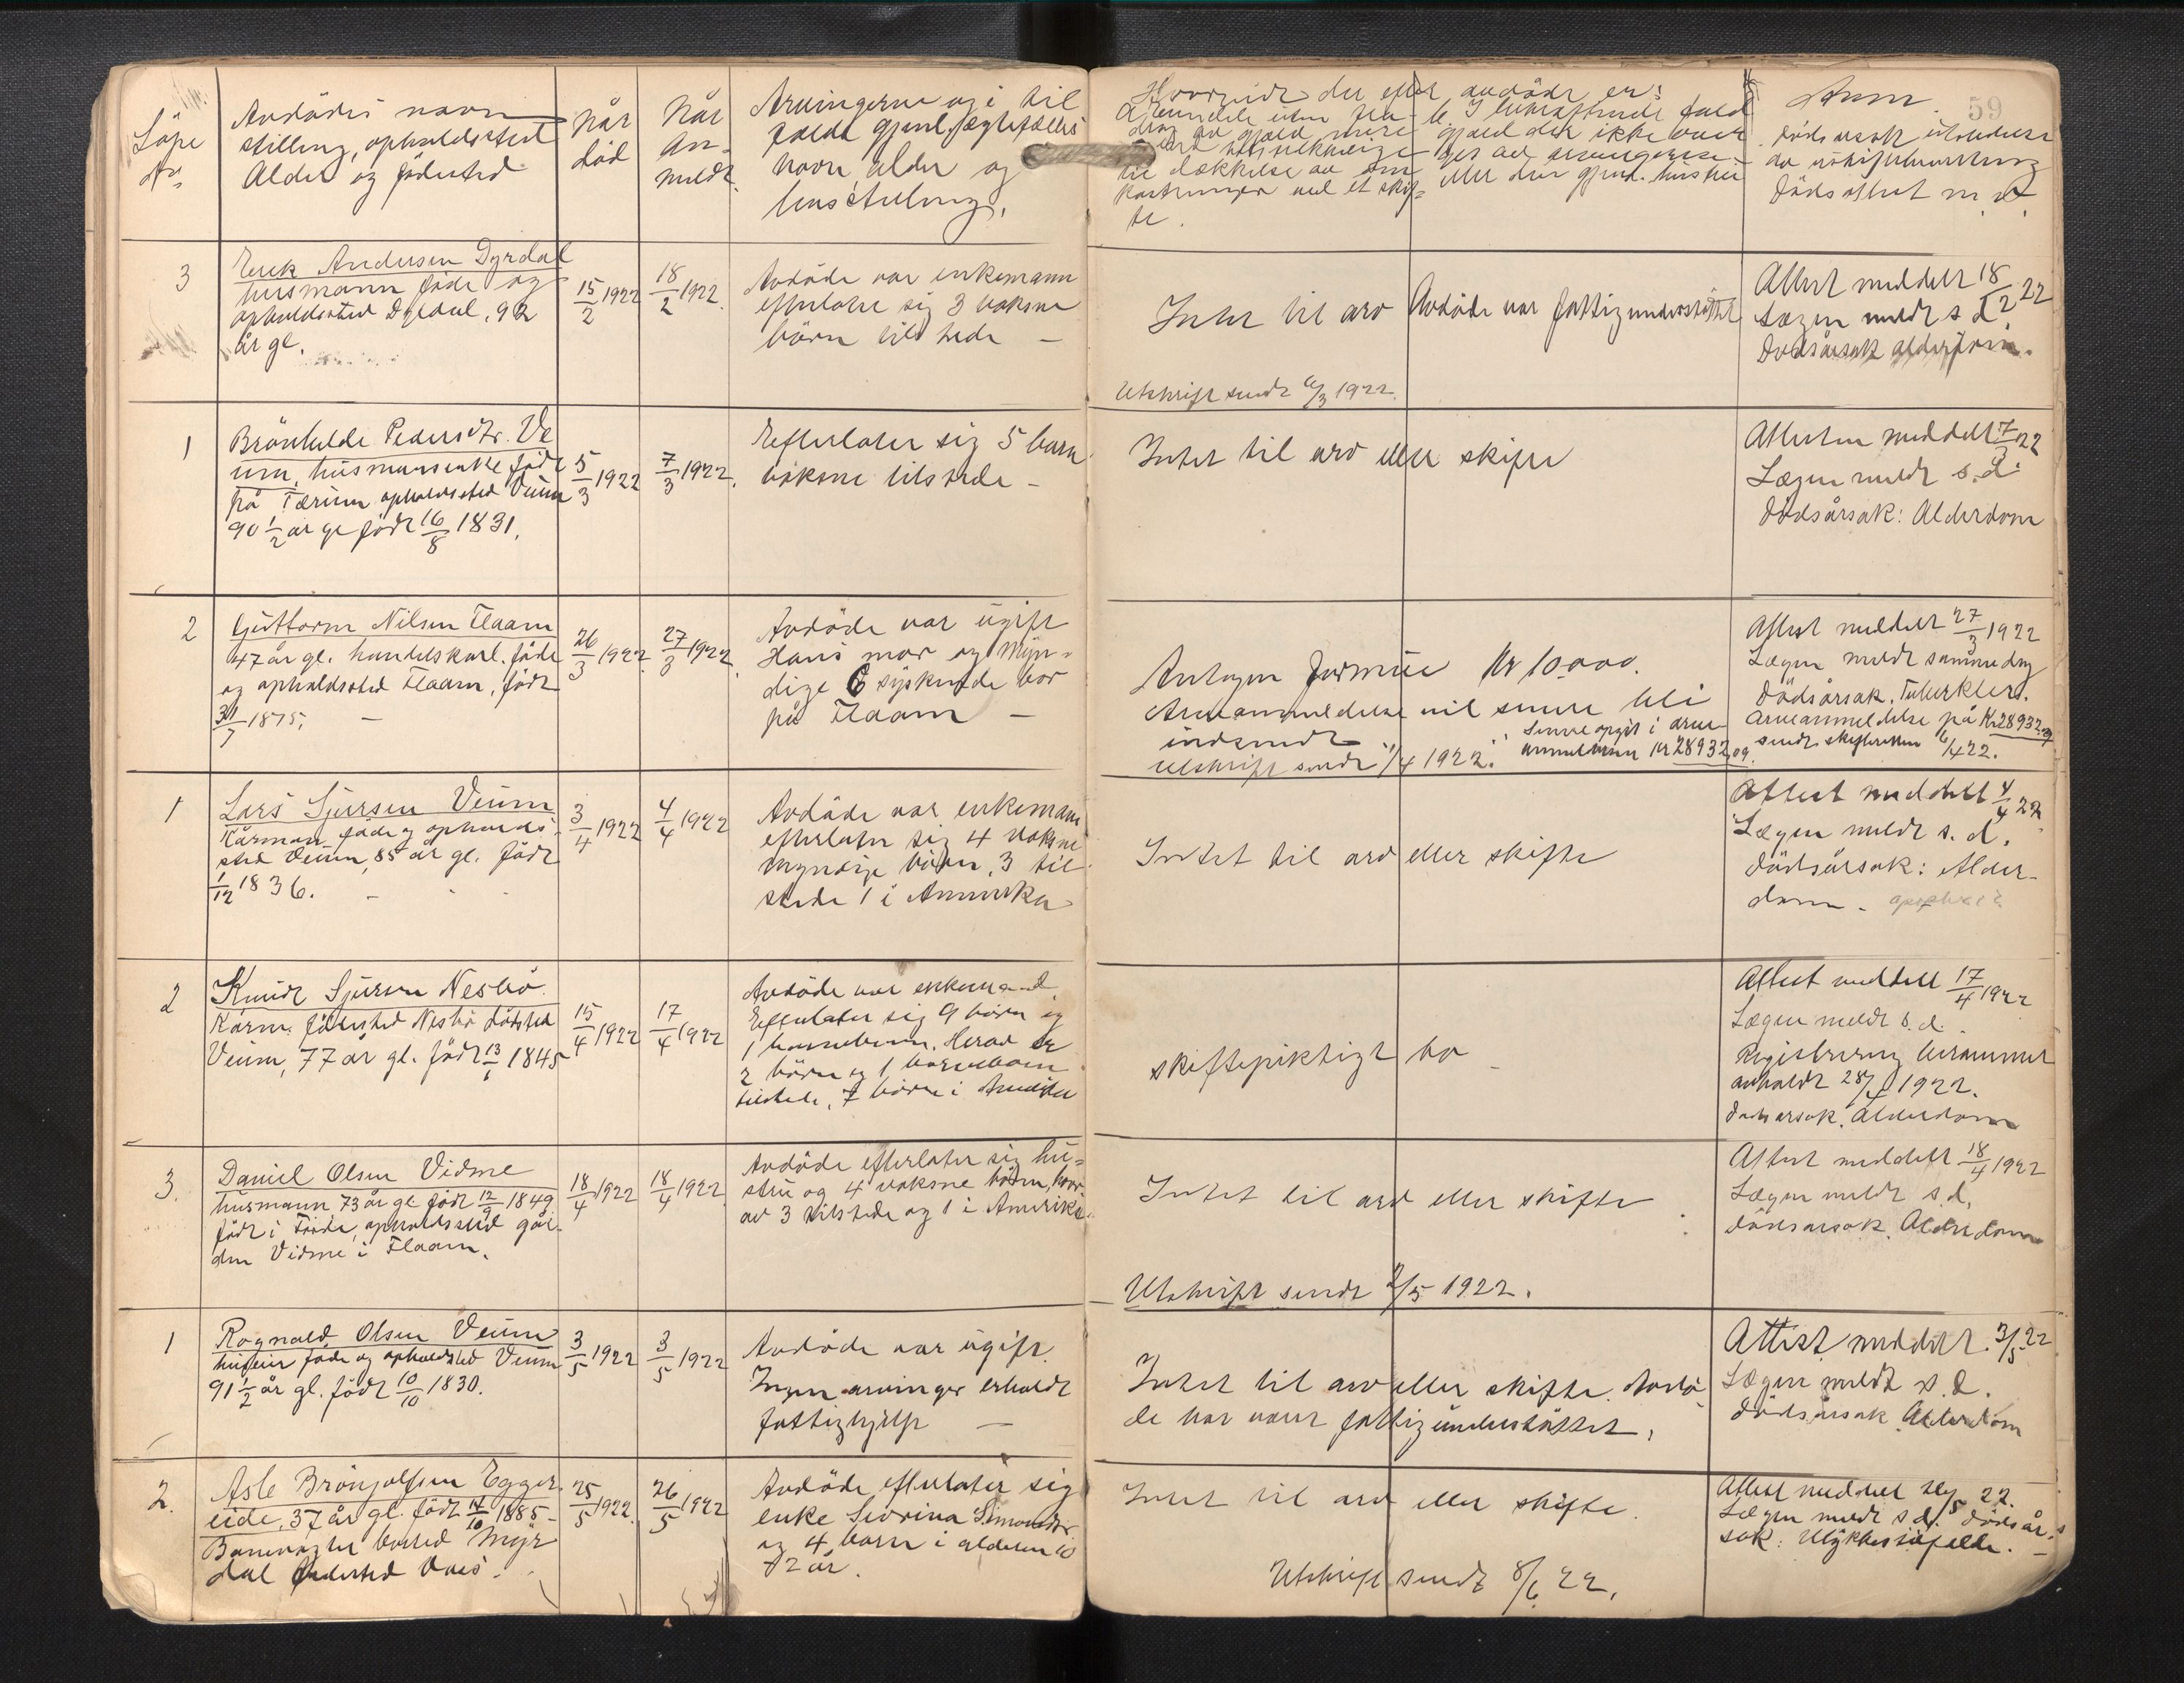 59
Löpe
No
Avdödes navn
stilling, opholdssted
Alder og födested
Når
död
Når
an-
meldt.
Arvingerne og i til
fælde gjenl. ægtefælles
navn, alder og
livsstilling.
Hvorvidt der efter avdöde er:
b. I bekræftende fald
gjæld der ikke over
eller den gjenl.
te.
Anm.
Dödsårsak utstedelse
av
Dödsattest m. v.
3
Erik Andersen Dyrdal
husmann föde og
opholdssted Dyrdal, 92
år gl.
15/2 1922
18/2 1922.
Avdöde var enkemann
efterlater sig 3 voksne
börn tilstede —
Intet til arv
Avdöde var fattigunderstöttet
Utskrift sendt 6/3 1922.
Attest meddelt 18/2 22
Lægen meldt s. d.
Dödsårsak alderdom.
1
Brönhilde Pedersdtr. Ve
um, husmannsenke föde
på Tærum opholdssted Veum
90 1/2 år gl födt 16/8 1831.
5/3 1922
7/3 1922.
Efterlater sig 5 barn
voksne tilstede —
Intet til arv eller skifte
Attesten meddelt 7/3 22
Lægen meldt s. d.
Dödsårsak: Alderdom
2
Guttorm Nilsen Flaam
47 år gl. handelskarl. föde
og opholdssted Flaam, födt
30/7 1875. —
26/3 1922
27/3 1922.
Avdöde var ugift
Hans mor og myn-
dige 6 syskende bor
på Flaam —
Antagen formue Kr 10000.
Arveanmeldelse vil senere bli
indsendt
Senere opgit i arve
anmeldelsen Kr 28932,09.
Utskrift sendt 1/4 1922.
Attest meddelt 27/3 1922
Lægen meldt samme dag
Dödsårsak. Tuberklose.
Arveanmeldelse på Kr 28932,09
sendt skifteretten 6/4 22.
1
Lars Sjursen Veum
Kårman föde og opholds-
sted Veum, 85 år gl. födt
1/12 1836. —
3/4 1922
4/4 1922
Avdöde var enkemann
efterlater sig 4 voksne
myndige börn, 3 til
stede 1 i Amerika
Intet til arv eller skifte
Attest meddelt 4/4 22
Lægen meldt s. d.
Dödsårsak: Alder-
dom.
2
Knudt Sjursen Nesbö
Kårm. födested Nesbö dödssted
Veum, 77 år gl. födt 13/1 1845
15/4 1922
17/4 1922
Avdöde var enkemand
Efterlater sig 9 börn og
1 barnebarn. Herav er
2 börn og 1 barnebarn
tilstede, 7 börn i Amerika
skiftepliktigt bo —
Attest meddelt 17/4 1922
Lægen meldt s. d.
Registrering
avholdt 28/4 1922.
Dödsårsak. Alderdom
3.
Daniel Olsen Vidme
husmann 73 år gl födt 12/9 1849
födt i Förde, opholdssted går-
den Vidme i Flaam.
18/4 1922
18/4 1922
Avdöde efterlater sig hu-
stru og 4 voksne börn, hvor
av 3 tilstede og 1 i Amerika.
Intet til arv eller skifte
Utskrift sendt 2/5 1922.
Attest meddelt 18/4 1922
Lægen meldt s. d.
Dödsårsak. Alderdom
1
Rognald Olsen Veum
huseier föde og opholdssted Veum
91 1/2 år gl. födt 10/10 1830.
3/5 1922
3/5 1922
Avdöde var ugift.
Ingen arvinger erholdt
fattighjelp —
Intet til arv eller skifte. Avdö
de har været fattigunderstöttet.
Attest meddelt 3/5 22
Lægen meldt s. d.
Dödsårsak. Alderdom
2.
Asle Brönjolfsen Egger
eide, 37 år gl. födt 14/10 1885 —
Banevogter bosted Myr
dal födested Voss.
25/5 1922.
26/5 1922
Avdöde efterlater sig
enke Severina Simonsdtr.
og 4 barn i alderen 10
-12 år.
Intet til arv eller skifte.
Utskrift sendt 8/6 22.
Attest meddelt 26/5 22.
Lægen meldt s. d. Dödsår-
sak: Ulykkestilfælde. —